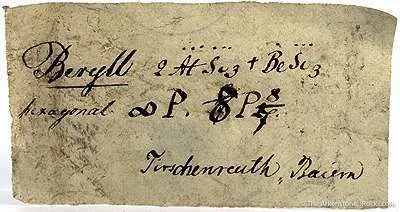 Beryll 2 Al Si3 + Be Si3
hexagonal ∞ P. P
Tirschenreuth, Baiern
The Arkenstone, iRocks.com